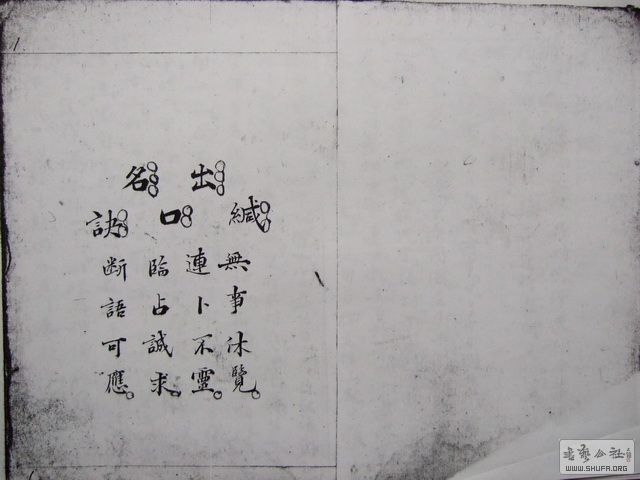 出名
緘口訣
無事休覽
連卜不靈
臨占誠求
断語可應
1
書藝公社
WWW.SHUFA.ORG